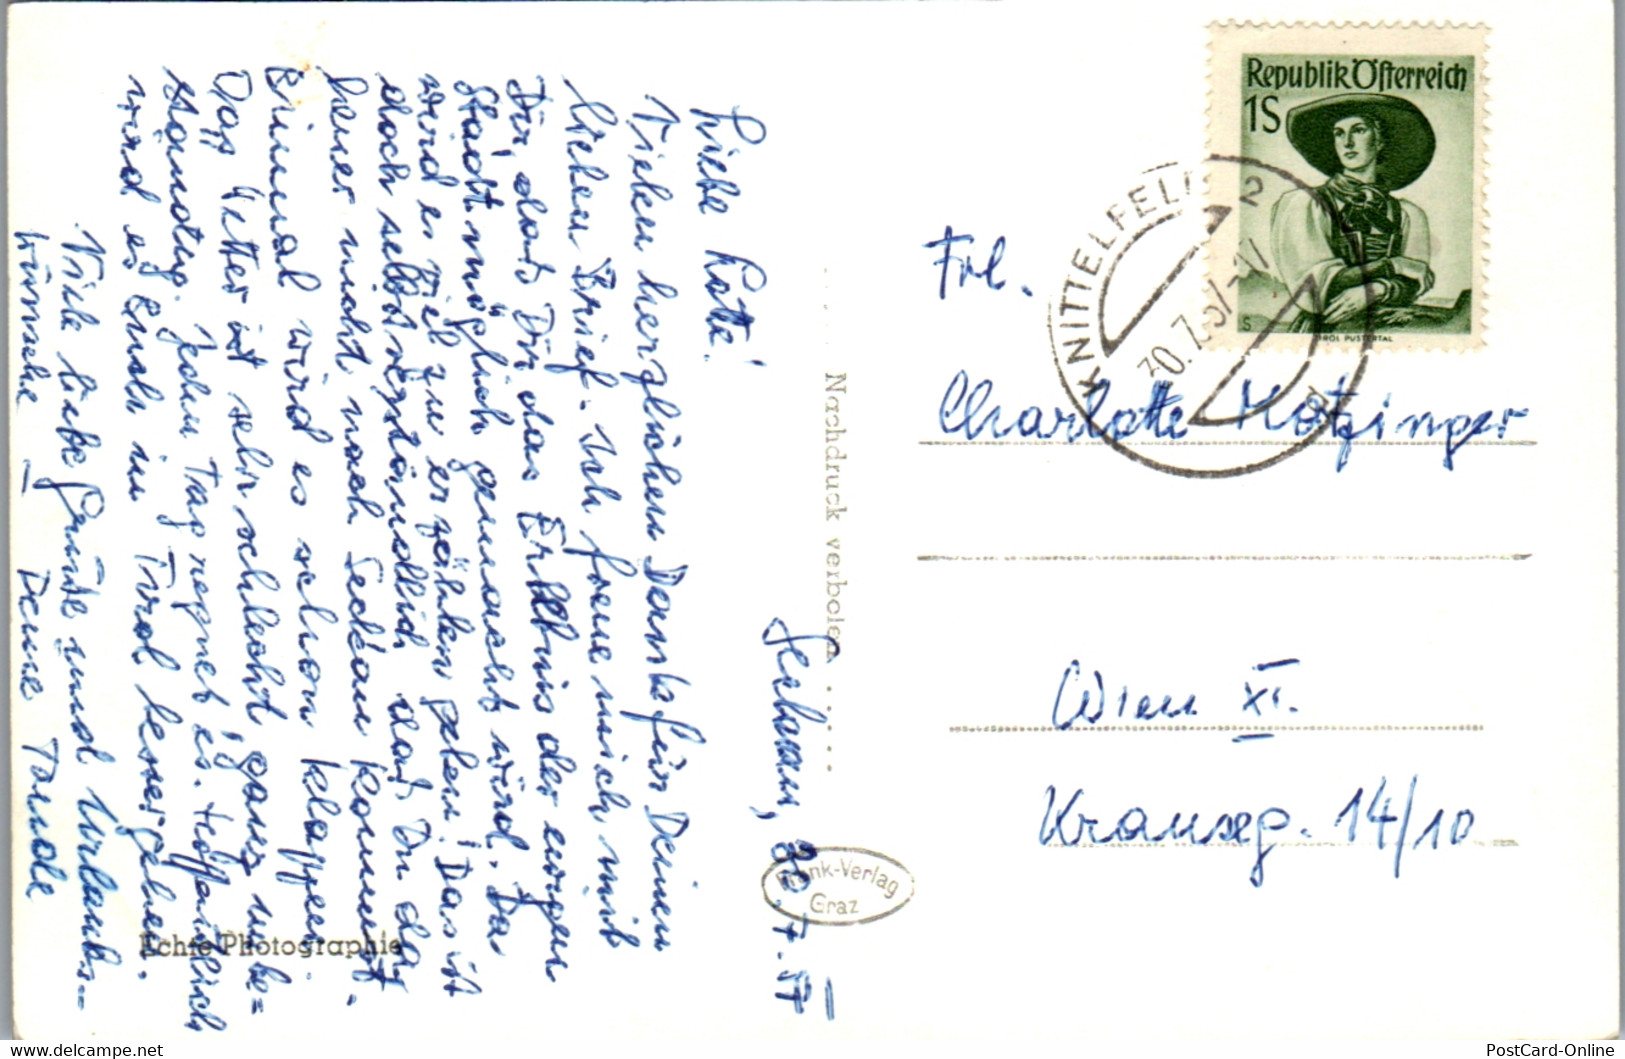 Seckau, 30.7.57
Liebe Lotte!
Vielen herzlichen Dank für Deinen
lieben Brief. Ich freue mich mit
Dir, daß Dir das Erlebnis der ewigen
Stadt möglich gemacht wird. Da
wird es viel zu erzählen geben! Das ist
doch selbstverständlich, daß Du dann
heuer nicht nach Seckau kommst.
Einmal wird es schon klappen.
Das Wetter ist sehr schlecht, ganz unbe=
ständig. Jeden Tag regnet es. Hoffentlich
wird es Euch in Tirol besser gehen.
Viele liebe Grüße und Urlaubs-
wünsche – Deine
Echte Photographie
Nachdruck verboten
Frank-Verlag
Graz
Republik Österreich
1S
TIROL PUSTERTAL
KNITTELFELD 2
30.7.57
Frl.
Charlotte Motzinger
Wien XI.
Krauseg. 14/10
PostCard-Online
https://www.delcampe.net
PostCard-Online